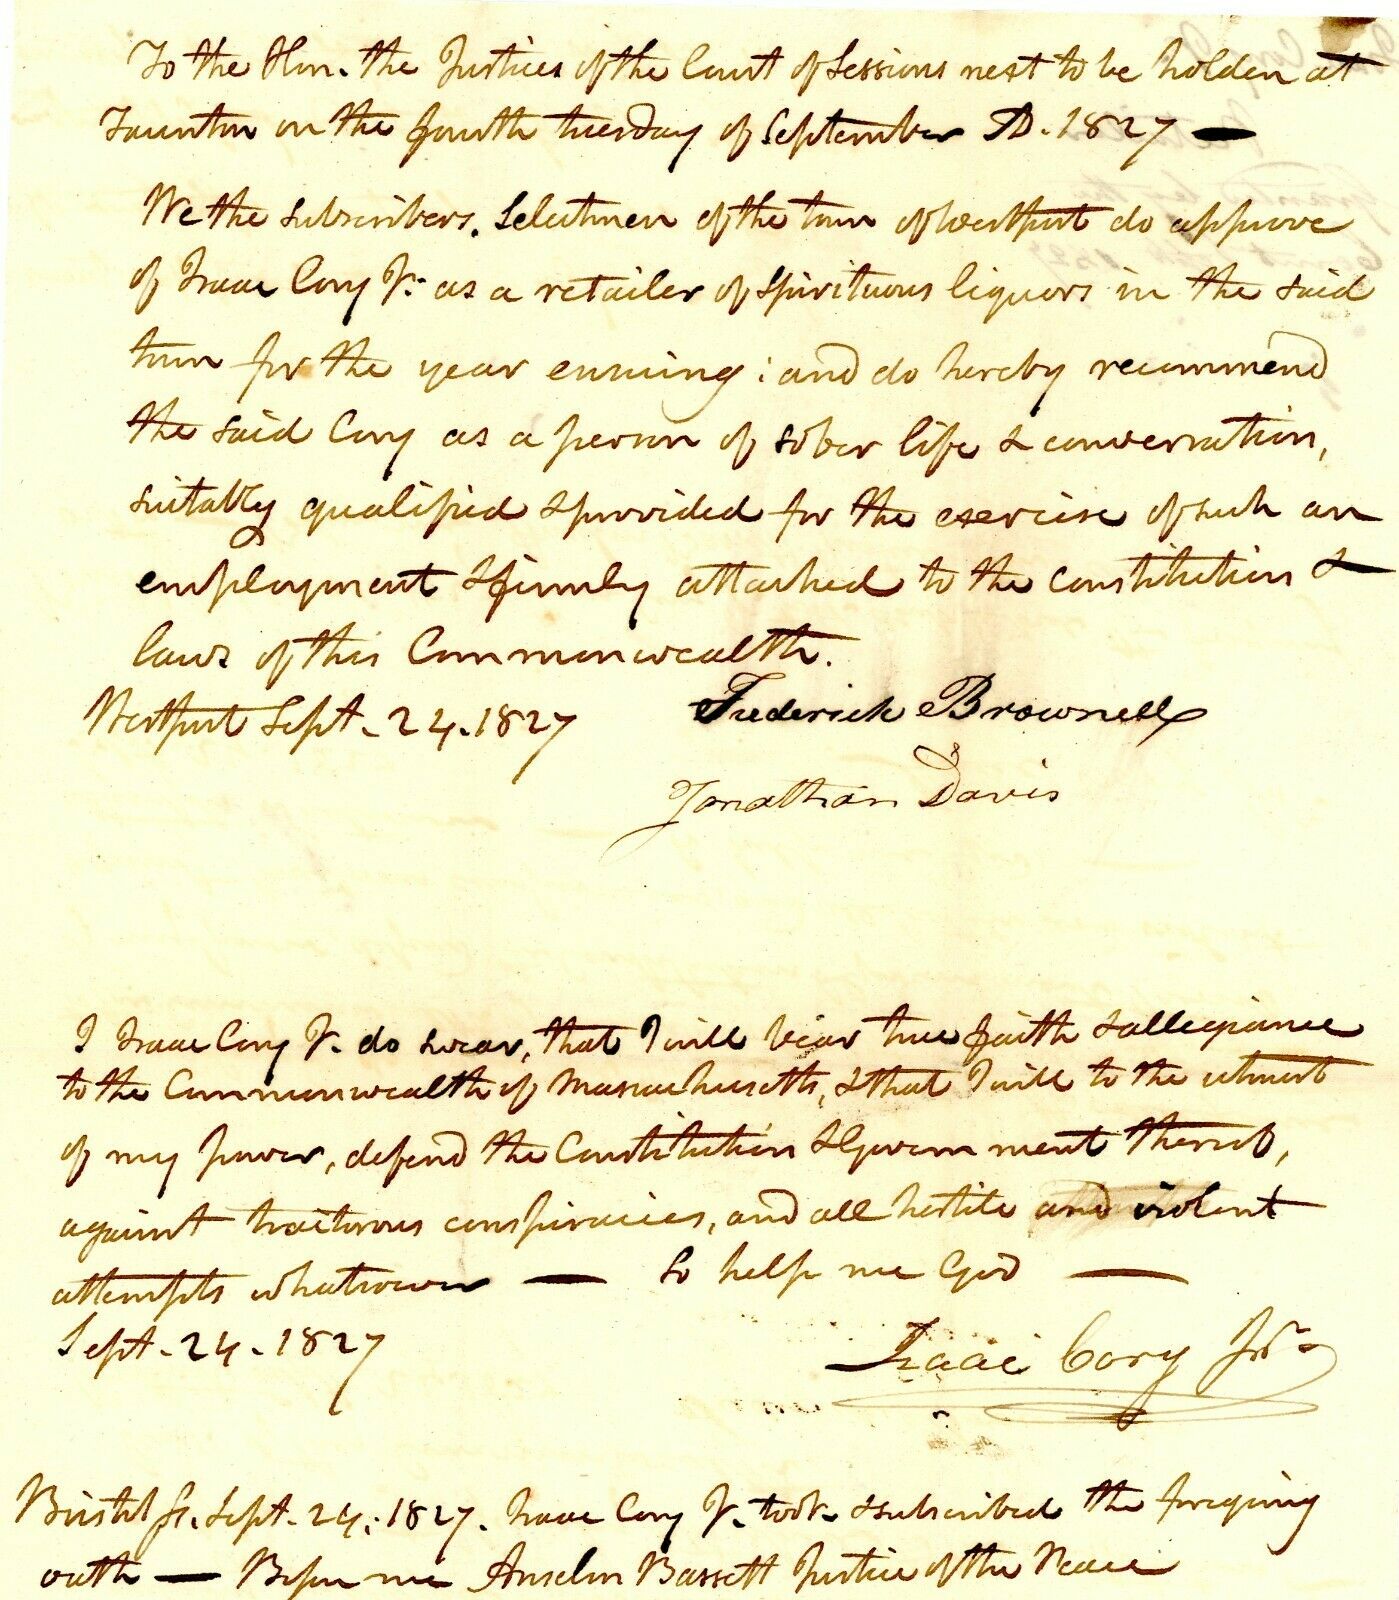 To the Hon. the Justices of the Court of Sessions next to be holden at
Taunton on the fourth tuesday of September AD. 1827 —
We the subscribers, Selectmen of the town of Westport do approve
of Isaac Cory Jr. as a retailer of spirituous liquors in the said
town for the year ensuing: and do hereby recommend
the said Cory as a person of sober life & conversation,
suitably qualified & provided for the exercise of such an
employment & firmly attached to the constitution &
laws of this Commonwealth.
Westport Sept. 24. 1827 Frederick Brownell
Jonathan Davis
I Isaac Cory Jr. do swear, that I will bear true faith & allegiance
to the Commonwealth of Massachusetts, & that I will to the utmost
of my power, defend the Constitution & Government thereof,
against traitorous conspiracies, and all hostile and violent
attempts whatsoever — So help me God —
Sept. 24. 1827
Isaac Cory Jr.
Bristol Ss. Sept. 24. 1827. Isaac Cory Jr. took & subscribed the foregoing
oath — Before me Anselm Bassett Justice of the Peace